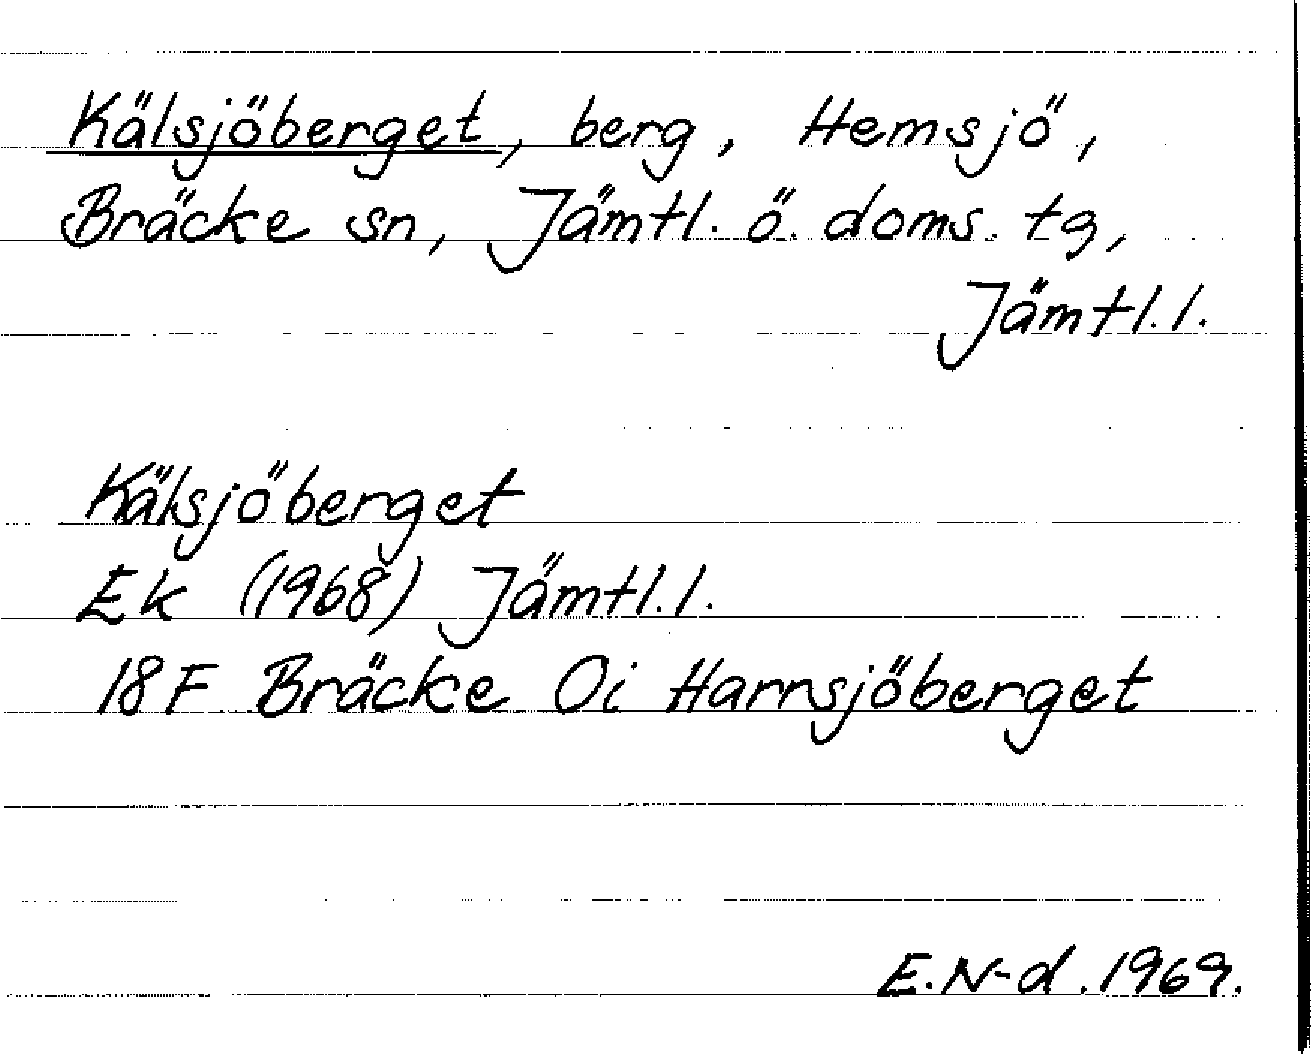 Kälsjöberget, berg, Hemsjö,
Bräcke sn, Jämtl. ö. doms. tg,
Jämtl. l.
Kälsjöberget
Ek (1968) Jämtl. l.
18F Bräcke Oi Harrsjöberget
E. N-d. 1969.